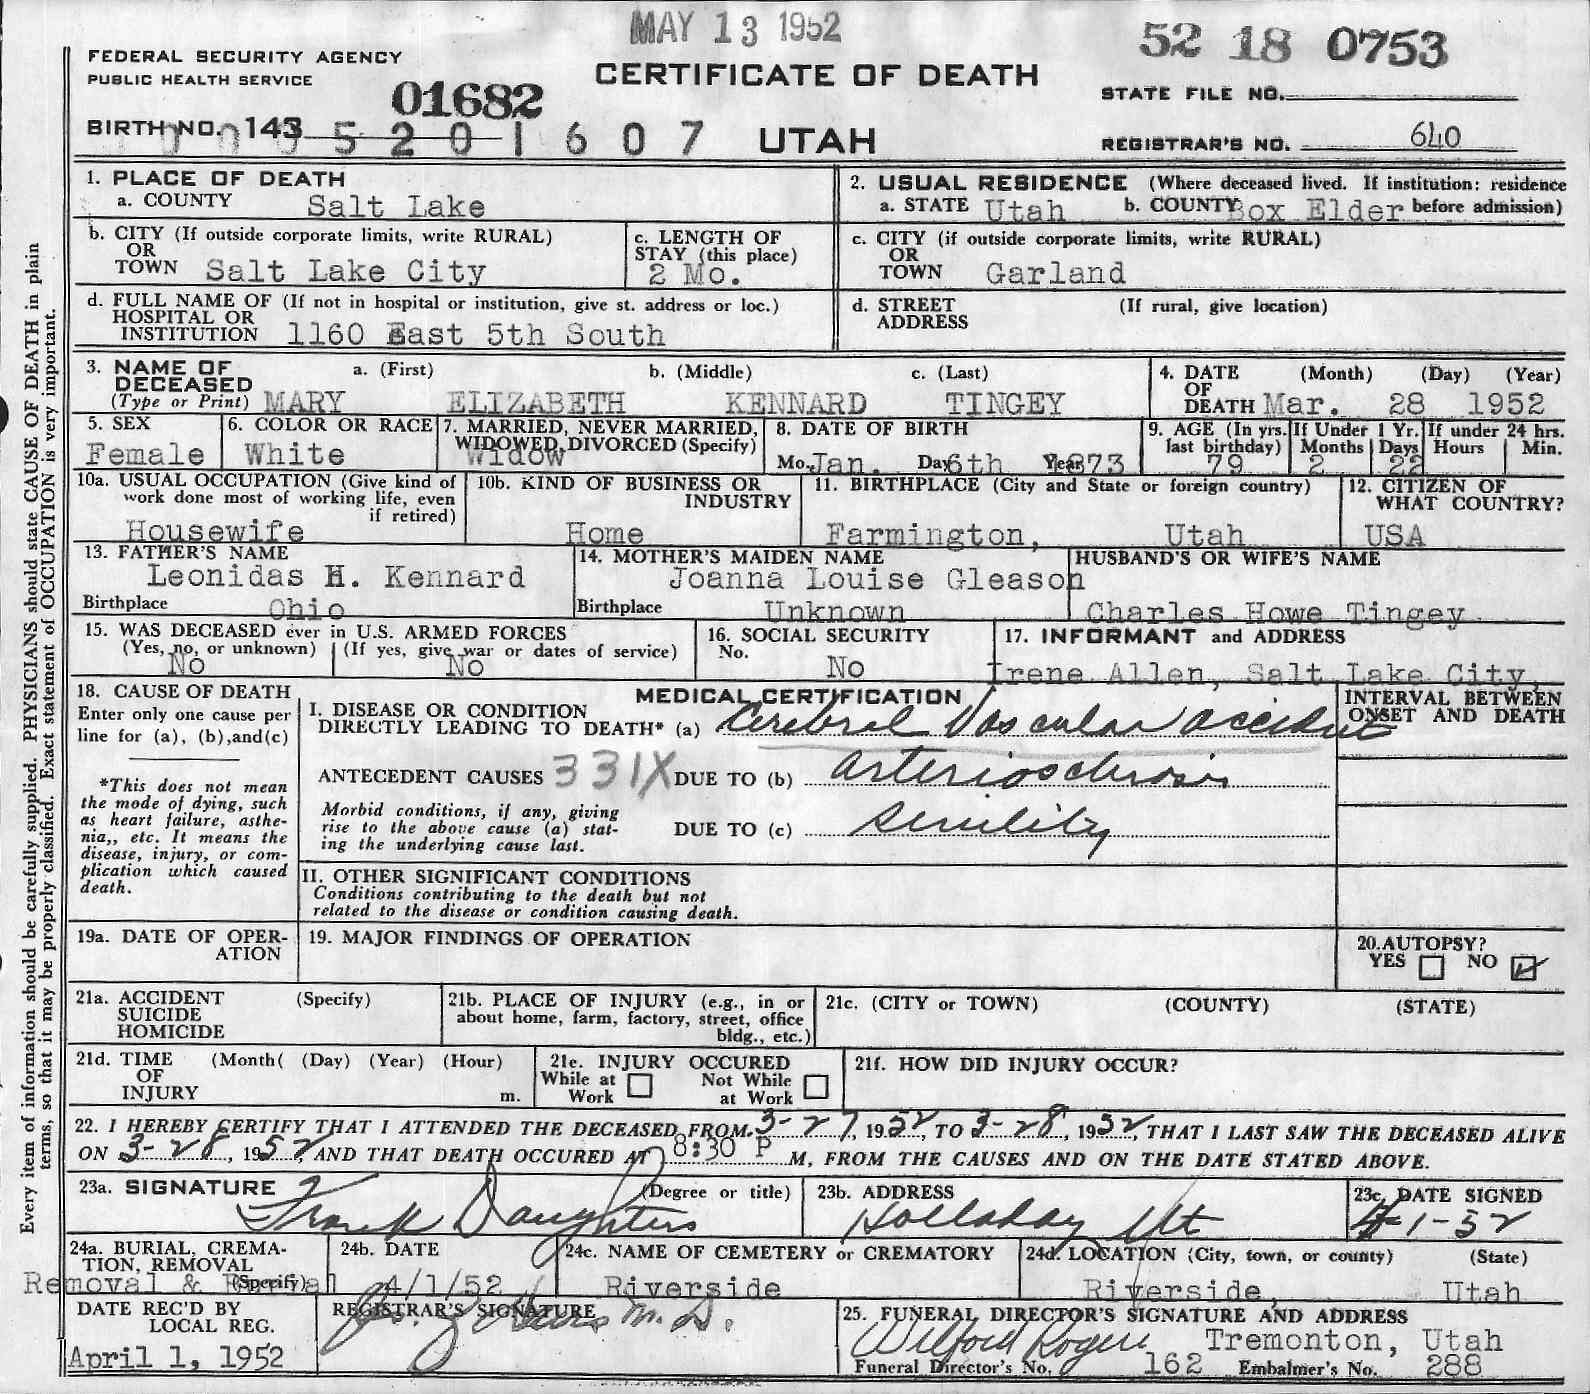 MAY 13 1952
52 18 0753
FEDERAL SECURITY AGENCY
PUBLIC HEALTH SERVICE
01682
CERTIFICATE OF DEATH
STATE FILE NO.
BIRTH NO. 143
5201607
UTAH
REGISTRAR'S NO. 640
1. PLACE OF DEATH
a. COUNTY Salt Lake
2. USUAL RESIDENCE (Where deceased lived. If institution: residence before admission)
a. STATE Utah b. COUNTY Box Elder
b. CITY (If outside corporate limits, write RURAL)
OR
TOWN Salt Lake City
c. LENGTH OF
STAY (this place)
2 Mo.
c. CITY (if outside corporate limits, write RURAL)
OR
TOWN Garland
d. FULL NAME OF (If not in hospital or institution, give st. address or loc.)
HOSPITAL OR
INSTITUTION 1160 East 5th South
d. STREET (If rural, give location)
ADDRESS
3. NAME OF a. (First) b. (Middle) c. (Last)
DECEASED
(Type or Print) MARY ELIZABETH KENNARD TINGEY
4. DATE (Month) (Day) (Year)
OF
DEATH Mar. 28 1952
5. SEX
Female
6. COLOR OR RACE
White
7. MARRIED, NEVER MARRIED,
WIDOWED, DIVORCED (Specify)
Widow
8. DATE OF BIRTH
Mo. Jan. Day 6th Year 1873
9. AGE (In yrs. last birthday)
79
If Under 1 Yr.
Months 2 Days 22
If under 24 hrs.
Hours Min.
10a. USUAL OCCUPATION (Give kind of
work done most of working life, even
if retired)
Housewife
10b. KIND OF BUSINESS OR
INDUSTRY
Home
11. BIRTHPLACE (City and State or foreign country)
Farmington, Utah
12. CITIZEN OF
WHAT COUNTRY?
USA
13. FATHER'S NAME
Leonidas H. Kennard
Birthplace Ohio
14. MOTHER'S MAIDEN NAME
Joanna Louise Gleason
Birthplace Unknown
HUSBAND'S OR WIFE'S NAME
Charles Howe Tingey
15. WAS DECEASED ever in U.S. ARMED FORCES
(Yes, no, or unknown) (If yes, give war or dates of service)
No No
16. SOCIAL SECURITY
No.
No
17. INFORMANT and ADDRESS
Irene Allen, Salt Lake City,
18. CAUSE OF DEATH
Enter only one cause per
line for (a), (b),and(c)
*This does not mean
the mode of dying, such
as heart failure, asthe-
nia,, etc. It means the
disease, injury, or com-
plication which caused
death.
MEDICAL CERTIFICATION
I. DISEASE OR CONDITION
DIRECTLY LEADING TO DEATH* (a) Cerebral Vascular accident
ANTECEDENT CAUSES 331X DUE TO (b) arteriosclerosis
Morbid conditions, if any, giving
rise to the above cause (a) stat-
ing the underlying cause last.
DUE TO (c) senility
INTERVAL BETWEEN
ONSET AND DEATH
II. OTHER SIGNIFICANT CONDITIONS
Conditions contributing to the death but not
related to the disease or condition causing death.
19a. DATE OF OPER-
ATION
19. MAJOR FINDINGS OF OPERATION
20. AUTOPSY?
YES NO
21a. ACCIDENT (Specify)
SUICIDE
HOMICIDE
21b. PLACE OF INJURY (e.g., in or
about home, farm, factory, street, office
bldg., etc.)
21c. (CITY or TOWN) (COUNTY) (STATE)
21d. TIME (Month( (Day) (Year) (Hour)
OF
INJURY m.
21e. INJURY OCCURED
While at Work Not While at Work
21f. HOW DID INJURY OCCUR?
22. I HEREBY CERTIFY THAT I ATTENDED THE DECEASED FROM 3-27, 1952, TO 3-28, 1952, THAT I LAST SAW THE DECEASED ALIVE
ON 3-28, 1952, AND THAT DEATH OCCURED AT 8:30 P M, FROM THE CAUSES AND ON THE DATE STATED ABOVE.
23a. SIGNATURE (Degree or title)
Frank Daughters
23b. ADDRESS
Holladay Ut
23c. DATE SIGNED
4-1-52
24a. BURIAL, CREMA-
TION, REMOVAL
(Specify)
Removal & Burial
24b. DATE
4/1/52
24c. NAME OF CEMETERY or CREMATORY
Riverside
24d. LOCATION (City, town, or county) (State)
Riverside, Utah
DATE REC'D BY
LOCAL REG.
April 1, 1952
REGISTRAR'S SIGNATURE
M.D.
25. FUNERAL DIRECTOR'S SIGNATURE AND ADDRESS
Wilford Rogers Tremonton, Utah
Funeral Director's No. 162 Embalmer's No. 288
Every item of information should be carefully supplied. PHYSICIANS should state CAUSE OF DEATH in plain
terms, so that it may be properly classified. Exact statement of OCCUPATION is very important.